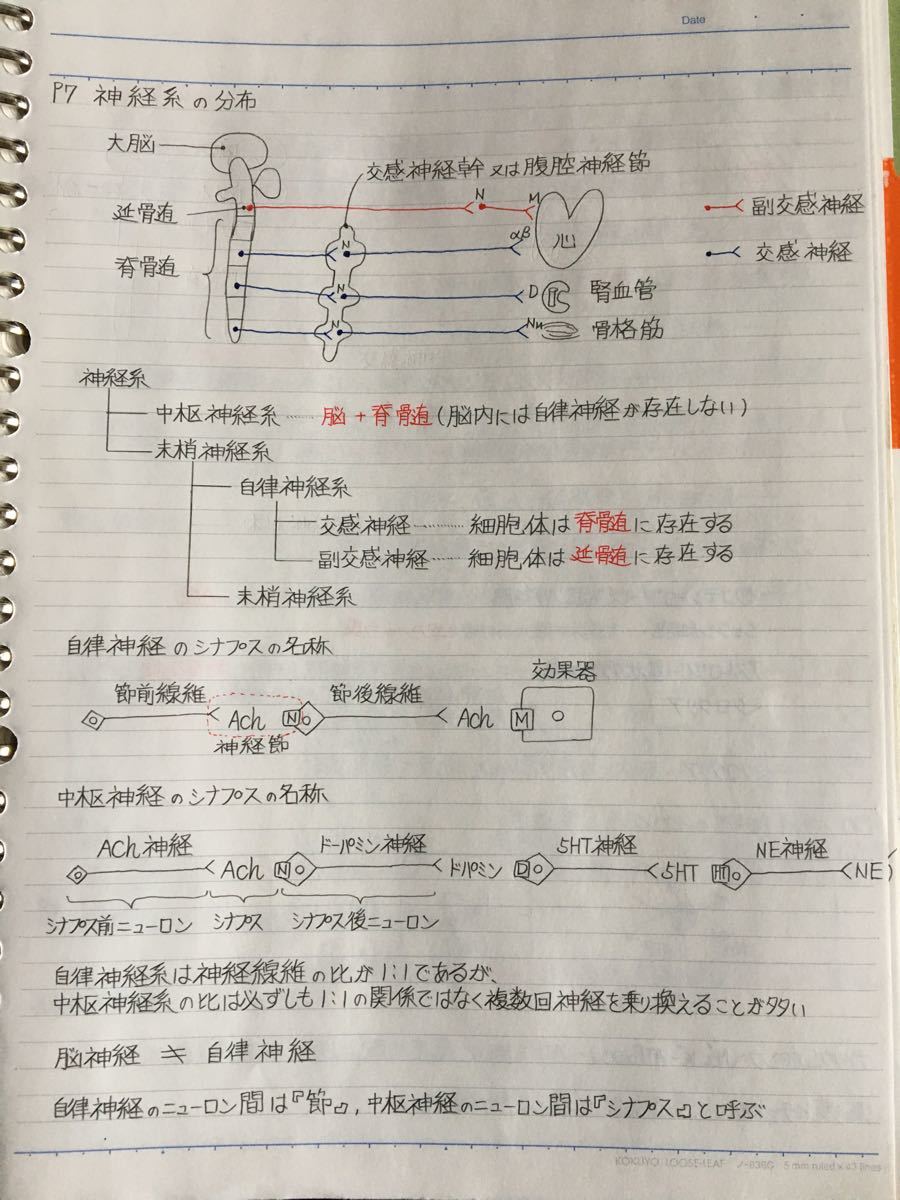 Date
P7 神経系の分布
大脳
交感神経幹又は腹腔神経節
延骨随
N
M
心
副交感神経
脊骨随
N
αβ
交感神経
N
D
腎血管
N
NM
骨格筋
神経系
中枢神経系 …… 脳+脊骨随(脳内には自律神経が存在しない)
末梢神経系
自律神経系
交感神経 ……… 細胞体は脊骨随に存在する
副交感神経 …… 細胞体は延骨随に存在する
末梢神経系
自律神経のシナプスの名称
節前線維
節後線維
効果器
Ach
N
Ach
M
神経節
中枢神経のシナプスの名称
ACh神経
ドーパミン神経
5HT神経
NE神経
Ach
N
ドパミン
D
5HT
HT
NE
シナプス前ニューロン
シナプス
シナプス後ニューロン
自律神経系は神経線維の比が1:1であるが、
中枢神経系の比は必ずしも1:1の関係ではなく複数回神経を乗り換えることが多い
脳神経 ≒ 自律神経
自律神経のニューロン間は『節』,中枢神経のニューロン間は『シナプス』と呼ぶ
KOKUYO LOOSE-LEAF ノ-836G 5 mm ruled × 43 lines